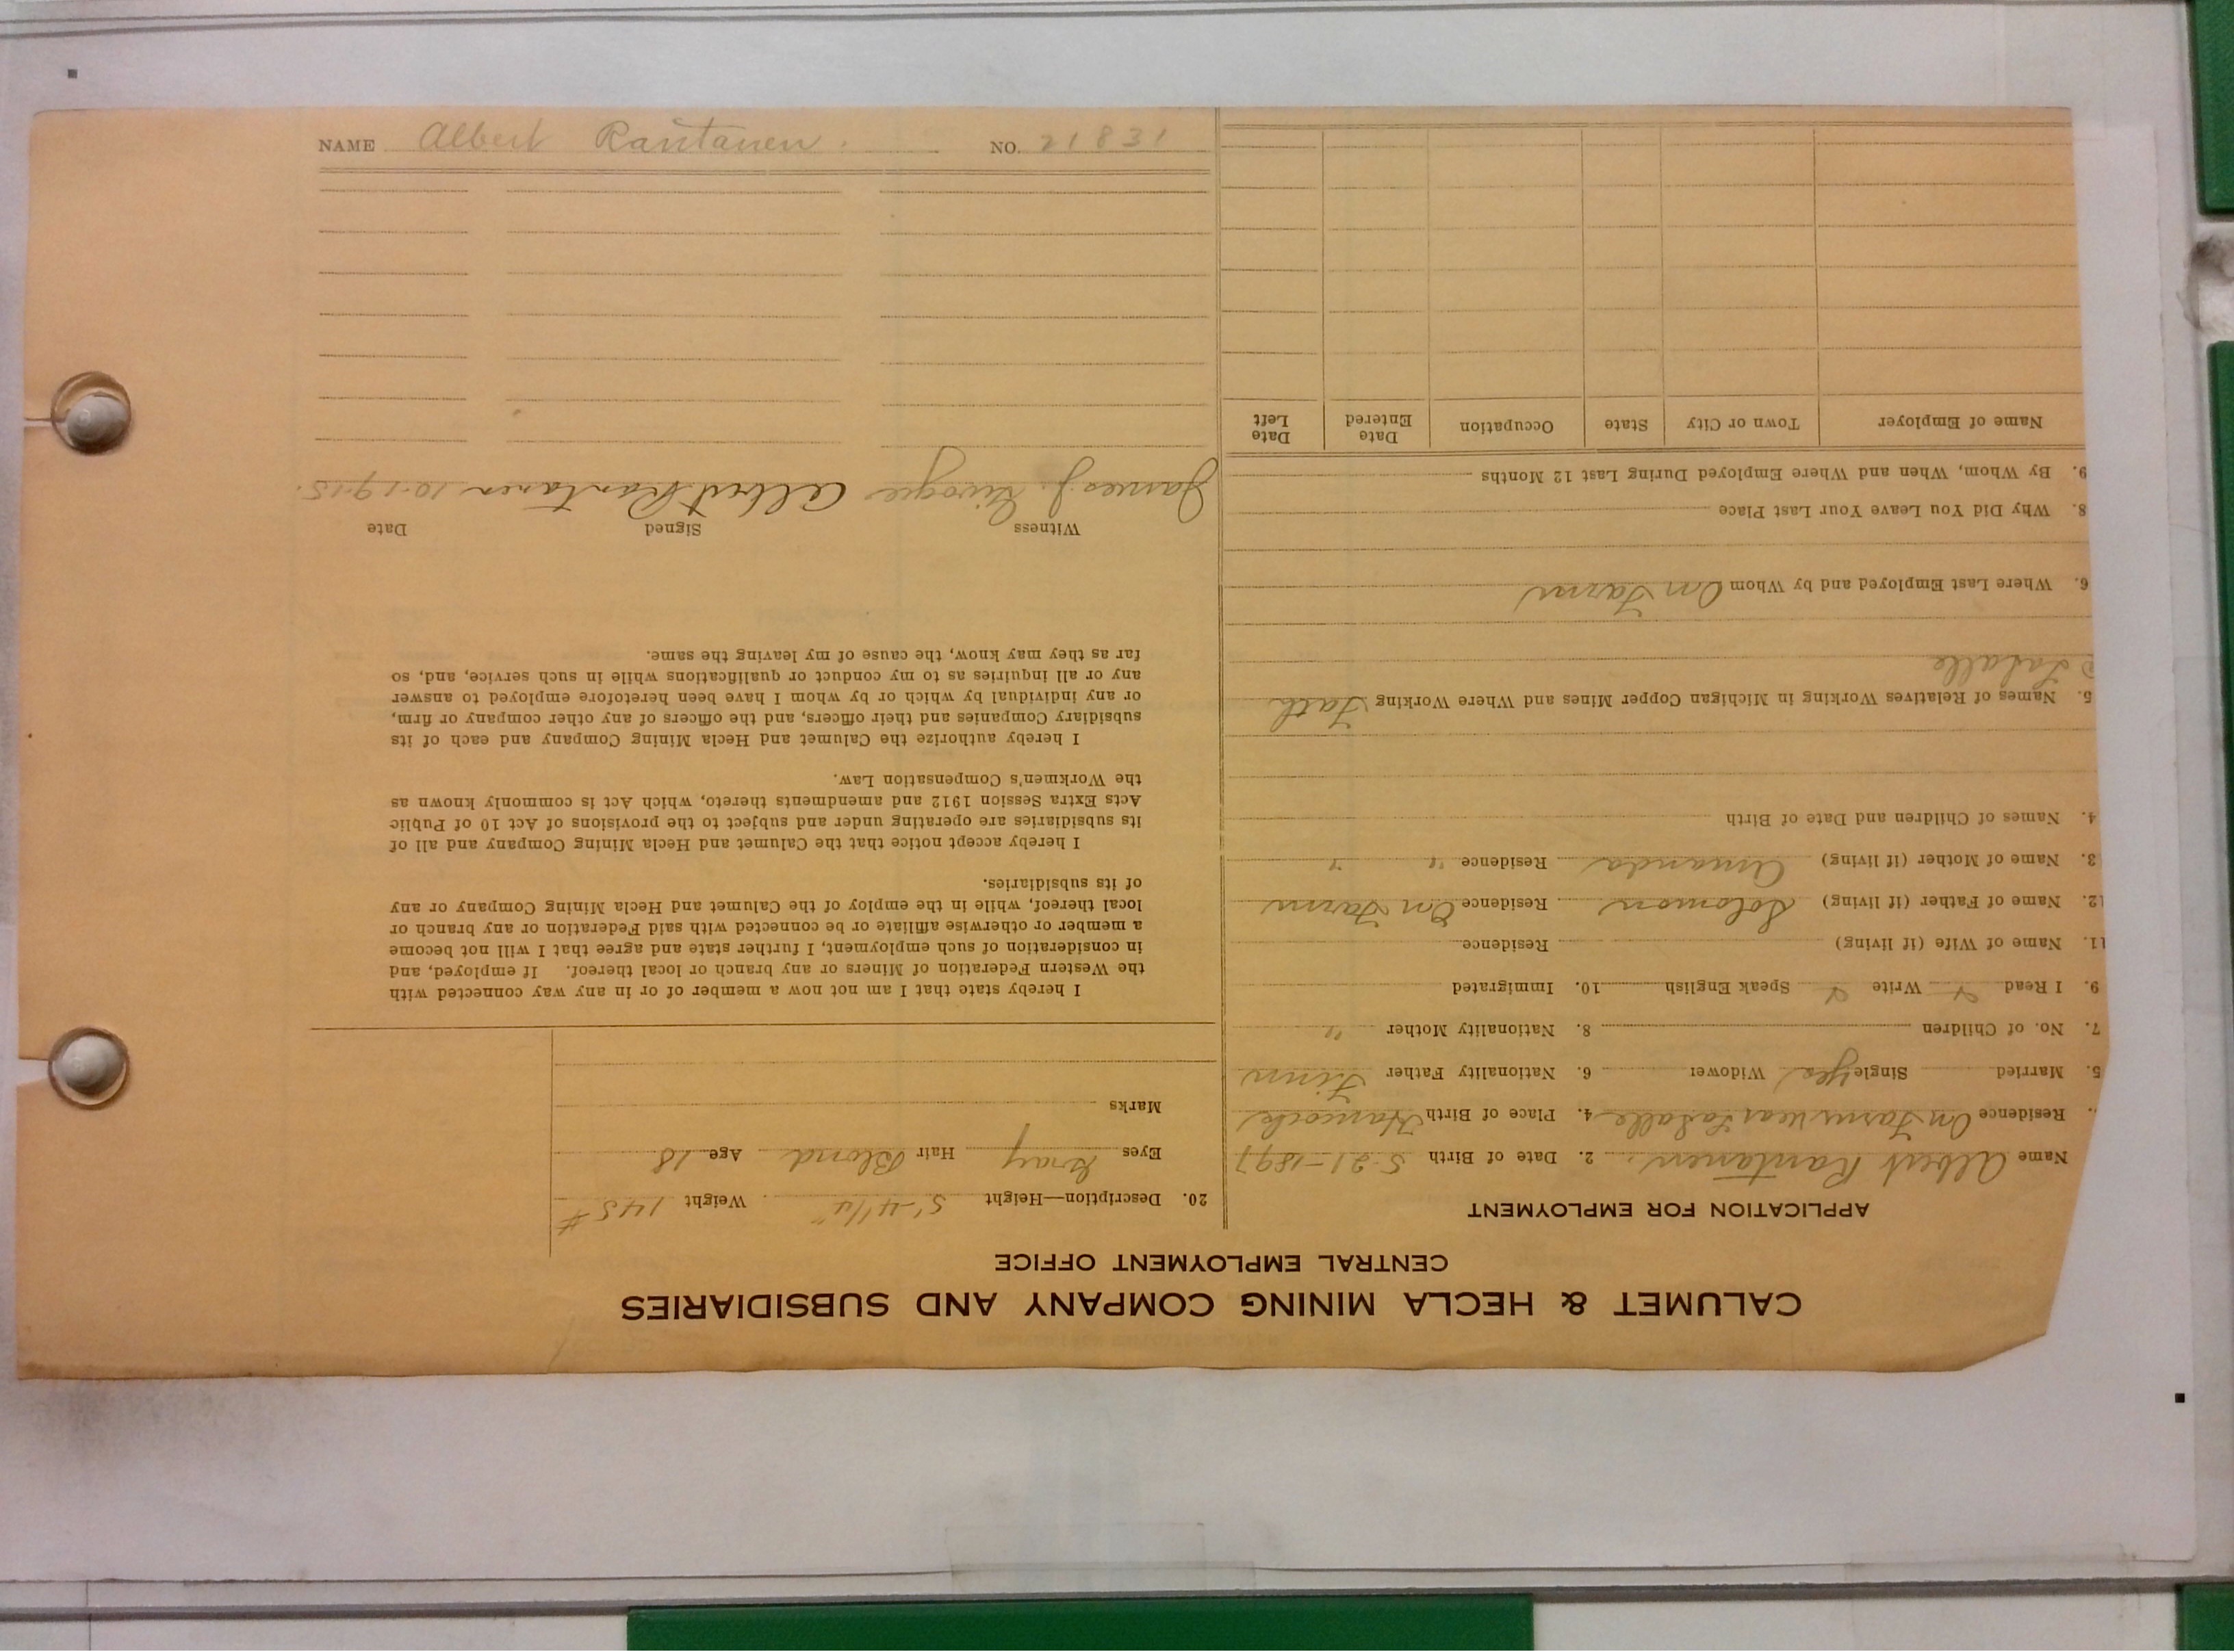 CALUMET & HECLA MINING COMPANY AND SUBSIDIARIES
CENTRAL EMPLOYMENT OFFICE
APPLICATION FOR EMPLOYMENT
Name Albert Rantanen. 2. Date of Birth 5-21-1897
Residence On Farm near LaSalle 4. Place of Birth Hancock
5. Married Single yes Widower 6. Nationality Father Finn
7. No. of Children 8. Nationality Mother "
9. I Read Write Speak English 10. Immigrated
11. Name of Wife (if living) Residence
12. Name of Father (if living) Solomon Residence On Farm
3. Name of Mother (if living) Amanda Residence " "
4. Names of Children and Date of Birth
5. Names of Relatives Working in Michigan Copper Mines and Where Working Fath
LaSalle
6. Where Last Employed and by Whom On Farm
8. Why Did You Leave Your Last Place
9. By Whom, When and Where Employed During Last 12 Months
Name of Employer Town or City State Occupation Date Entered Date Left
20. Description—Height 5'-4 1/4" Weight 145 #
Eyes Gray Hair Blond Age 18
Marks
I hereby state that I am not now a member of or in any way connected with
the Western Federation of Miners or any branch or local thereof. If employed, and
in consideration of such employment, I further state and agree that I will not become
a member or otherwise affiliate or be connected with said Federation or any branch or
local thereof, while in the employ of the Calumet and Hecla Mining Company or any
of its subsidiaries.
I hereby accept notice that the Calumet and Hecla Mining Company and all of
its subsidiaries are operating under and subject to the provisions of Act 10 of Public
Acts Extra Session 1912 and amendments thereto, which Act is commonly known as
the Workmen's Compensation Law.
I hereby authorize the Calumet and Hecla Mining Company and each of its
subsidiary Companies and their officers, and the officers of any other company or firm,
or any individual by which or by whom I have been heretofore employed to answer
any or all inquiries as to my conduct or qualifications while in such service, and, so
far as they may know, the cause of my leaving the same.
Witness Signed Date
James J. Albert Rantanen 10-19-15.
NAME Albert Rantanen. NO. 21831